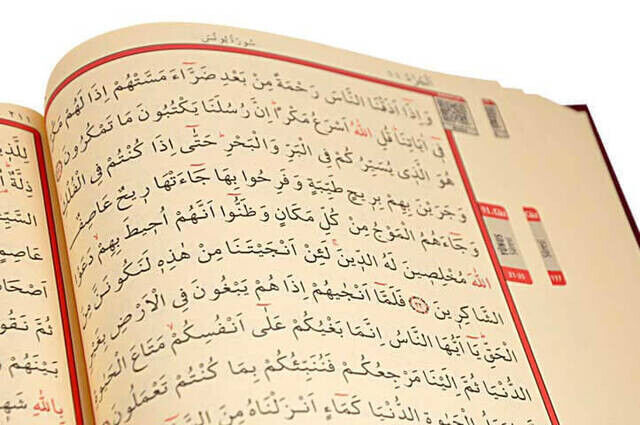 سُورَةُ يُونُسَ
وَاِذَٓا اَذَقْنَا النَّاسَ رَحْمَةً مِنْ بَعْدِ ضَرَّٓاءَ مَسَّتْهُمْ اِذَا لَهُمْ
ف۪ٓي اٰيَاتِنَا قُلِ اللّٰهُ اَسْرَعُ مَكْرًا اِنَّ رُسُلَنَا يَكْتُبُونَ مَا تَمْكُرُونَ
هُوَ الَّذ۪ي يُسَيِّرُكُمْ فِي الْبَرِّ وَالْبَحْرِ حَتّٰٓى اِذَا كُنْتُمْ فِي الْفُلْ
وَجَرَيْنَ بِهِمْ بِر۪يحٍ طَيِّبَةٍ وَفَرِحُوا بِهَا جَٓاءَتْهَا ر۪يحٌ عَاصِفٌ
وَجَٓاءَهُمُ الْمَوْجُ مِنْ كُلِّ مَكَانٍ وَظَنُّٓوا اَنَّهُمْ اُح۪يطَ بِهِمْ دَعَوُا
اللّٰهَ مُخْلِص۪ينَ لَهُ الدّ۪ينَ لَئِنْ اَنْجَيْتَنَا مِنْ هٰذِه۪ لَنَكُونَنَّ مِنَ
الشَّاكِر۪ينَ فَلَمَّٓا اَنْجٰيهُمْ اِذَا هُمْ يَبْغُونَ فِي الْاَرْضِ بِغَيْرِ
الْحَقِّ يَٓا اَيُّهَا النَّاسُ اِنَّمَا بَغْيُكُمْ عَلٰٓى اَنْفُسِكُمْ مَتَاعَ الْحَيٰوةِ
الدُّنْيَا ثُمَّ اِلَيْنَا مَرْجِعُكُمْ فَنُنَبِّئُكُمْ بِمَا كُنْتُمْ تَعْمَلُونَ
الْحَيٰوةِ الدُّنْيَا كَمَٓاءٍ اَنْزَلْنَاهُ مِنَ
٢١١
لِلَّذ۪ينَ
ذِلَّةٌ
عَاصِمٍ
اَصْحَابُ
ثُمَّ نَقُولُ
بَيْنَهُمْ
بِاللّٰهِ شَه۪
YÛNUS
21-25